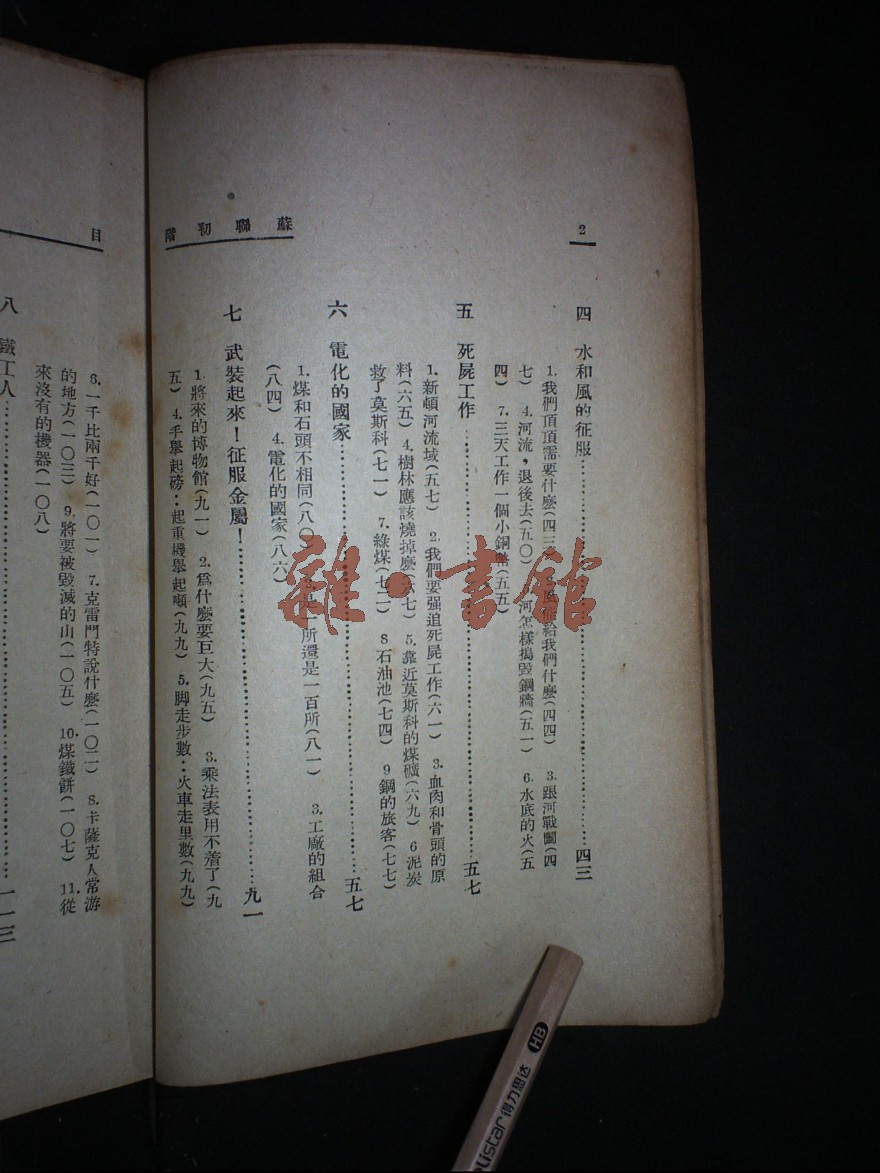 2
蘇聯初階
四 水和風的征服……四三
1. 我們頂頂需要什麼(四三) 2. 風能給我們什麼(四四) 3. 跟河戰鬭(四
七) 4. 河流，退後去(五〇) 河怎樣搗毀鋼牆(五一) 6. 水底的火(五
四) 7. 三天工作一個小銅幣(五五)
五 死屍工作……五七
1. 新頓河流域(五七) 2. 我們要强迫死屍工作(六一) 3. 血肉和骨頭的原
料(六五) 4. 樹林應該燒掉麼(六七) 5. 靠近莫斯科的煤礦(六九) 6 泥炭
救了莫斯科(七一) 7. 綠煤(七二) 8 石油池(七四) 9 鋼的旅客(七七)
六 電化的國家……五七
1. 煤和石頭不相同(八〇) 是一所還是一百所(八一) 3. 工廠的組合
(八四) 4. 電化的國家(八六)
七 武裝起來！征服金屬！……九一
1. 將來的博物館(九一) 2. 爲什麼要巨大(九五) 3. 乘法表用不着了(九
五) 4. 手舉起磅：起重機舉起噸(九九) 5. 脚走步數：火車走里數(九九)
目
6. 一千比兩千好(一〇一) 7. 克雷門特說什麼(一〇二) 8. 卡薩克人常游
的地方(一〇三) 9. 將要被毀滅的山(一〇五) 10. 煤鐵餅(一〇七) 11. 從
來沒有的機器(一〇八)
八 鐵工人……一一三
雜·書館
HB
listar 得力思达